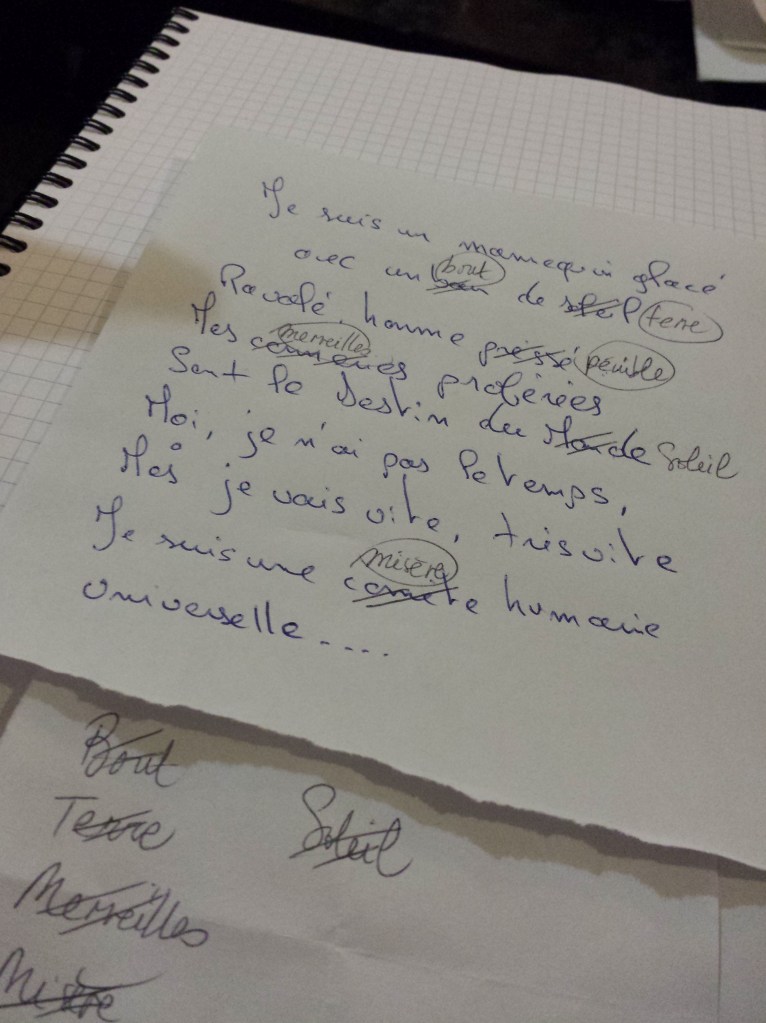 Je suis un mannequin glacé
avec un bout de soleil terre
Ravalé homme pressé pénible
Mes merveilles proférées
Sont le Destin du Monde Soleil
Moi, je n'ai pas le temps,
Mes je vais vite, très vite
Je suis une misère comete humaine
universelle ....
Bout
Terre Soleil
Merveilles
Misère